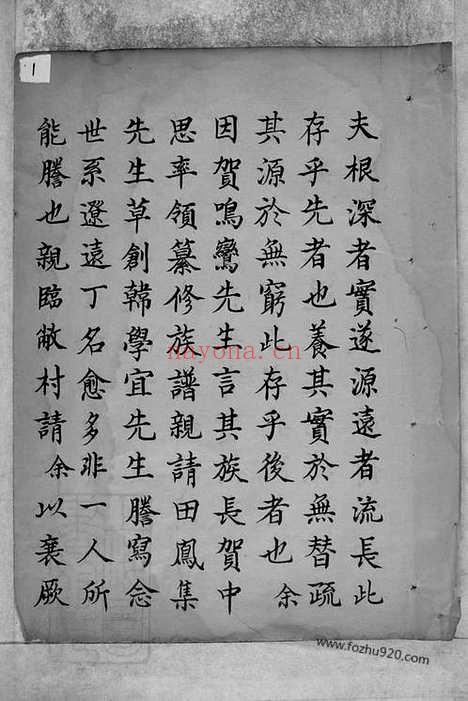 夫根深者實遂源遠者流長此
存乎先者也養其實於無替疏
其源於無窮此存乎後者也余
因賀鳴鸞先生言其族長賀中
思率領纂修族譜親請田鳳集
先生草創韓學宜先生謄寫念
世系遼遠丁名愈多非一人所
能謄也親臨敝村請余以襄厥
1
nayona.cn
www.fozhu920.com